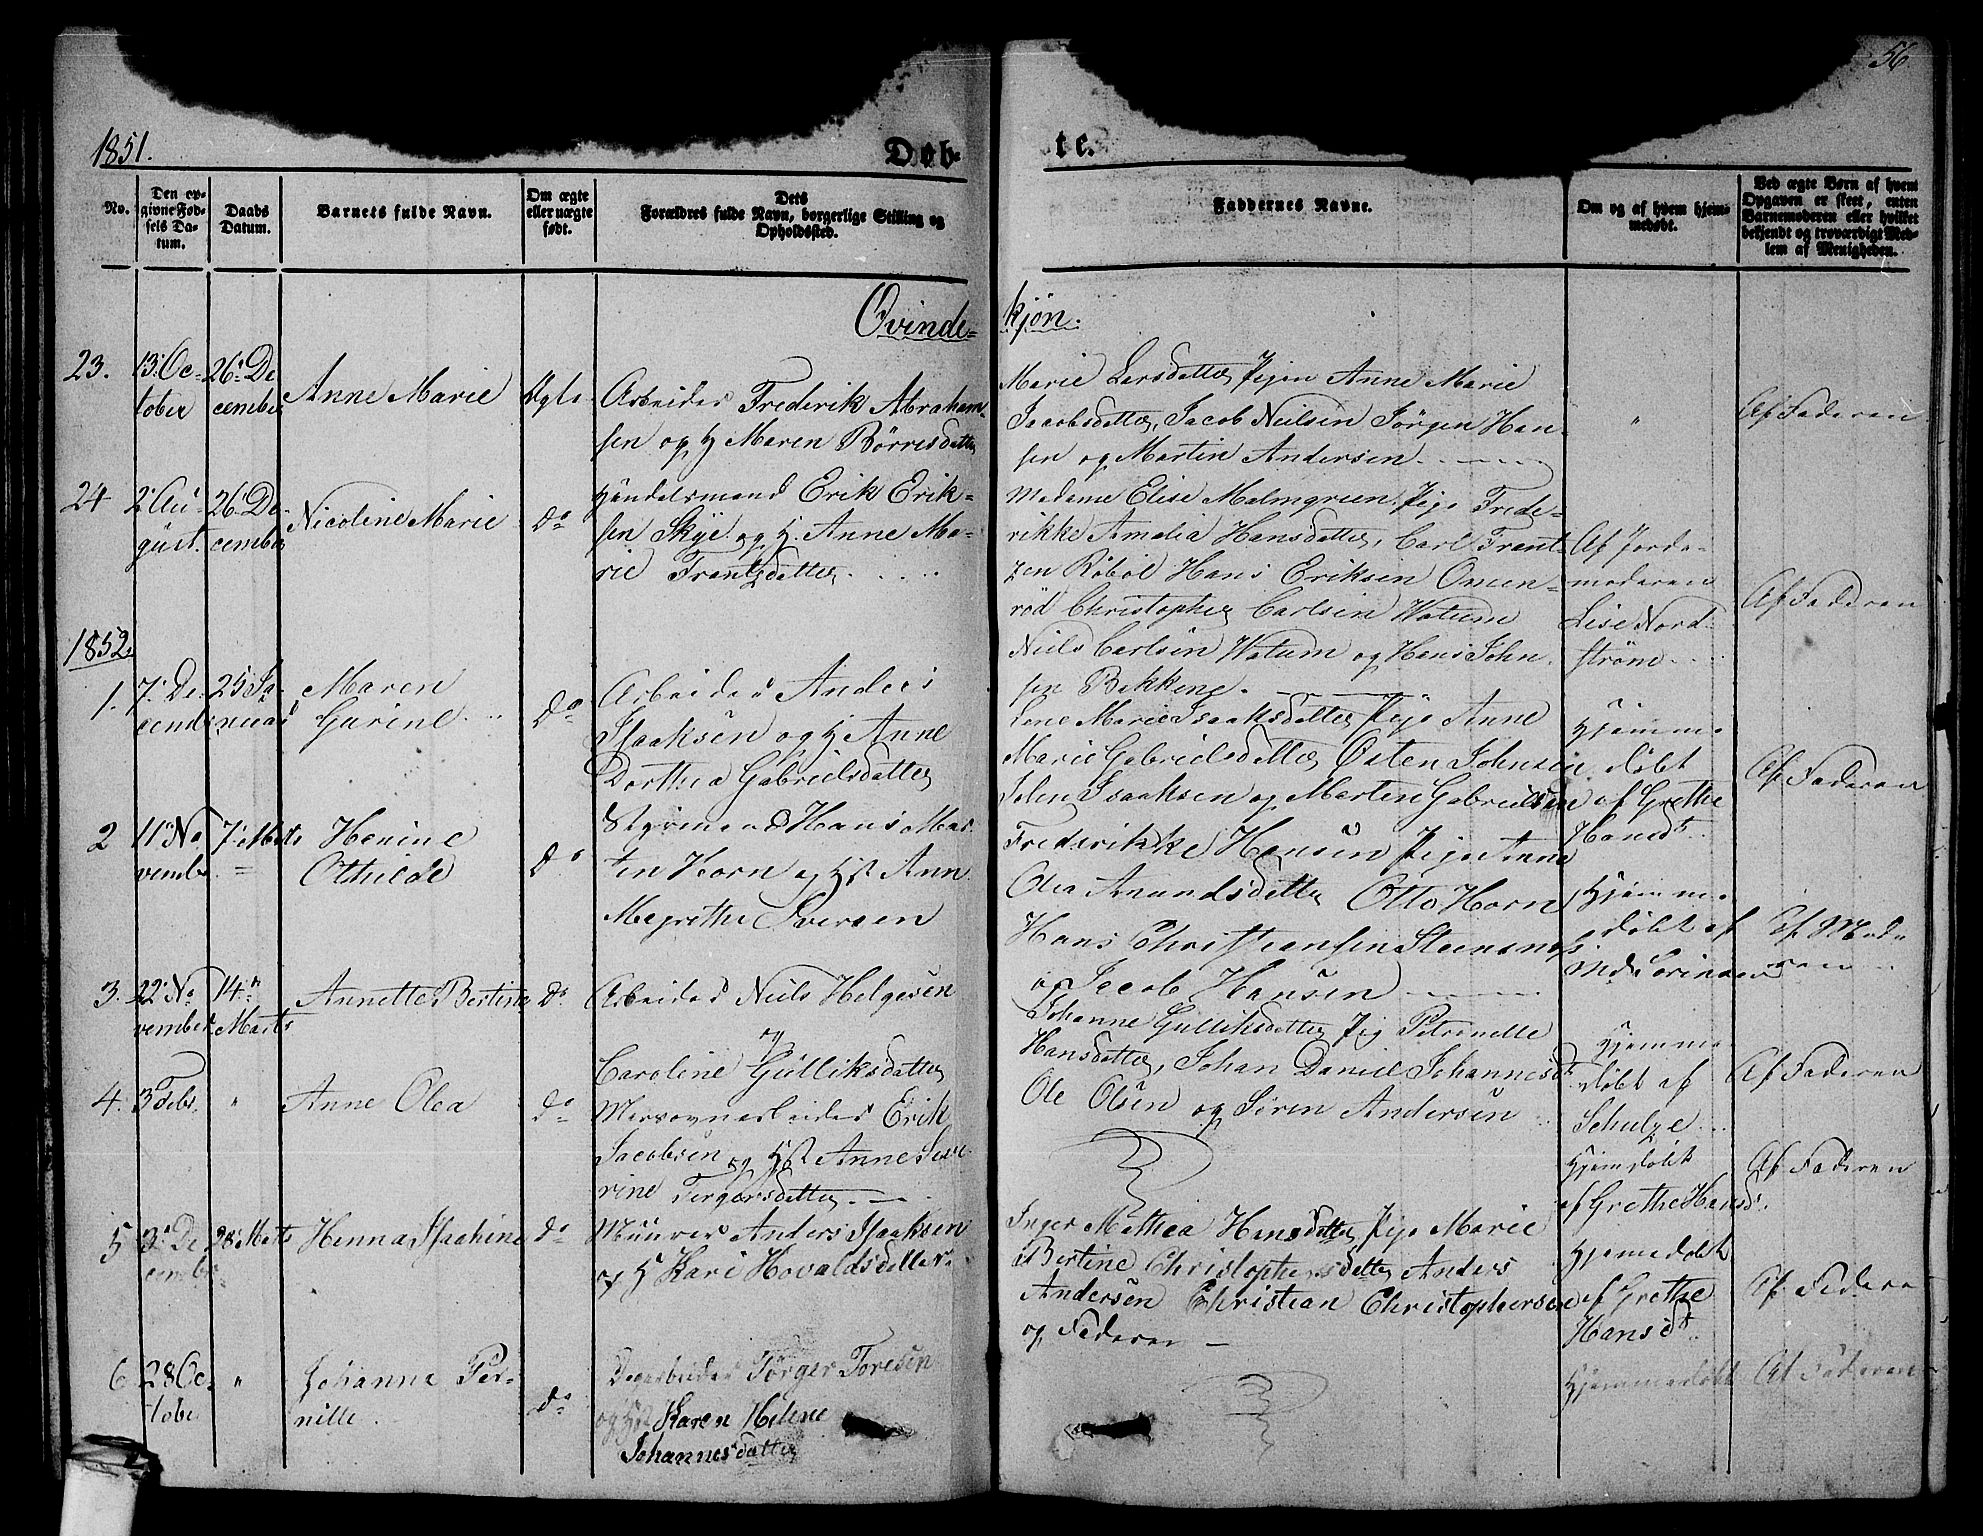 56
1851.
Døb-
te.
No.
Den op-
givne Fød-
sels Da-
tum.
Daabs
Datum.
Barnets fulde Navn.
Om ægte
eller uægte
født.
Dets
Forældres fulde Navn, borgerlige Stilling og
Opholdssted.
Faddernes Navne.
Om og af hvem hjem-
medøbt.
Ved ægte Børn af hvem
Opgaven er skeet, enten
Barnemoderen eller hvilket
bekjendt og troværdigt Med-
lem af Menigheden.
Qvinde-
kjøn.
23.
13. Oc-
tober
26. De
cember
Anne Marie
Ægte
Arbeider Frederik Abraham-
sen og H Maren Börresdatter
Marie Larsdatter Pigen Anne Marie
Jacobsdatter, Jacob Neilsen Jörgen Han-
sen og Martin Andersen
"
Af Faderen
24
2. Au-
gust.
26. De-
cember
Nicoline Marie
Do
Handelsmand Erik Erik-
sen Skye og H. Anne Ma-
rie Frantzdatter
Madame Elise Malmgreen, Pige Frede-
rikke Amalia Hansdatter, Carl Frant-
zen Röböl Hans Eriksen Omen-
röd Christopher Carlsen Watum
Niels Carlsen Watum og Hans John-
sen Bekkene.
Af Jorde-
moderen
Lise Nord-
ström
Af Faderen
1852.
1.
7. De-
cembr
25 Ja-
nuar
Maren
Garine
Do
Arbeider Anders
Isaaksen og H Anne
Dorthea Gabrielsdatter
Lene Marie Isaaksdatter Pige Anne
Marie Gabrielsdatter Östen Johnsen
John Isaaksen og Martin Gabrielsen
Hjemme-
döbt
af Grethe
Hansdt.
Af Faderen
2
11. No
vembr
7. Marts
Henine
Othilde
Do
Styrmand Hans Mor
ten Horn og Hst Ann
Megrethe Iversen
Frederikke Hansen Pige Anne
Olea Amundsdatter Otto Horn
Hans Christiansen Steensnæs
og Jacob Hansen
Hjemme-
döbt af
Af Mode-
ren
3.
22. No
vember
14.
Marts
Annette Bertine
Do
Arbeider Niels Helgesen
og
Caroline Gulliksdatter
Johanne Gulliksdatter Pig Petronelle
Hansdatter, Johan Daniel Johannesd
Ole Olsen og Sören Andersen
Hjemme-
döbt af
Schulze
Af Faderen
4.
3 Febr.
"
Anne Olea
Do
Masovnarbeider Erik
Jacobsen og Hst Anne Seve-
rine Torgersdatter
Hjemdöbt
af Grethe Hansd.
Af Faderen
5
3. De
cembr
28. Marts
Henna Isachine
Do
Muurer Anders Isaaksen
og H Kari Hovaldsdatter
Inger Mathea Hansdatter Pige Marie
Bertine Christophersdatter Anders
Andersen Christian Christophersen
og Faderen
Hjemedöbt
af Grethe
Hansdt.
Af Fadere
6
28 Oc-
tober
"
Johanna Per-
nille.
Do
Degarbeider Törger Toresen
og Hst Karen Helene
Johannesdatter
Hjemmedöbt
Af Faderen